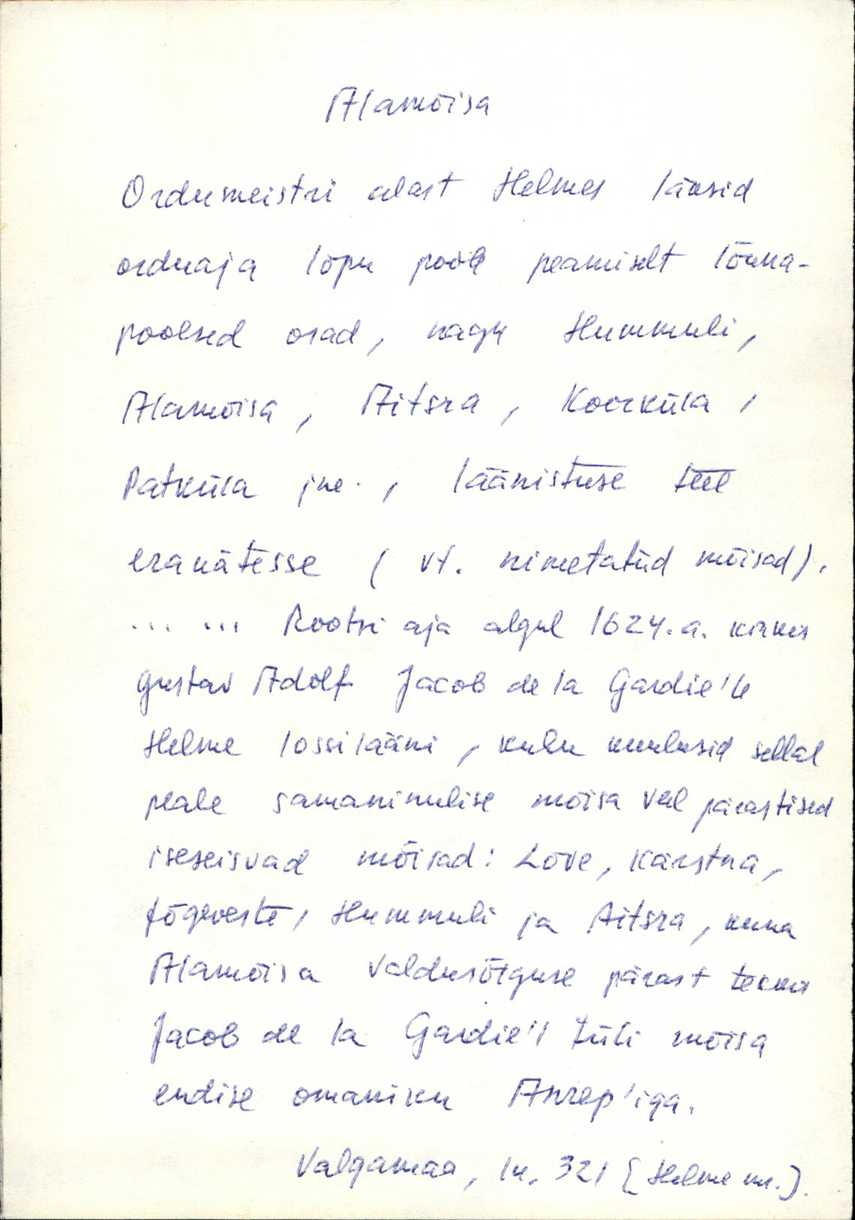 Alamõisa
Ordumeistri alast Helmes läksid
orduaja lõpu poole peamiselt lõuna-
poolsed osad, nagu Hummuli,
Alamõisa, Aitsra, Koorküla,
Patküla jne., läänistuse teel
erakätesse ( vt. nimetatud mõisad).
... ... Rootsi aja algul 1624.a. kinkis
Gustav Adolf Jacob de la Gardie'le
Helme lossilääni, kuhu kuulusid sellal
peale samanimelise mõisa veel pärastised
iseseisvad mõisad: Lõve, Kärstna,
Jõgeveste, Hummuli ja Aitsra, kuna
Alamõisa valdusõiguse pärast tekkis
Jacob de la Gardie'l tüli mõisa
endise omaniku Anrep'iga.
Valgamaa, lk. 321 [Helme kh.].